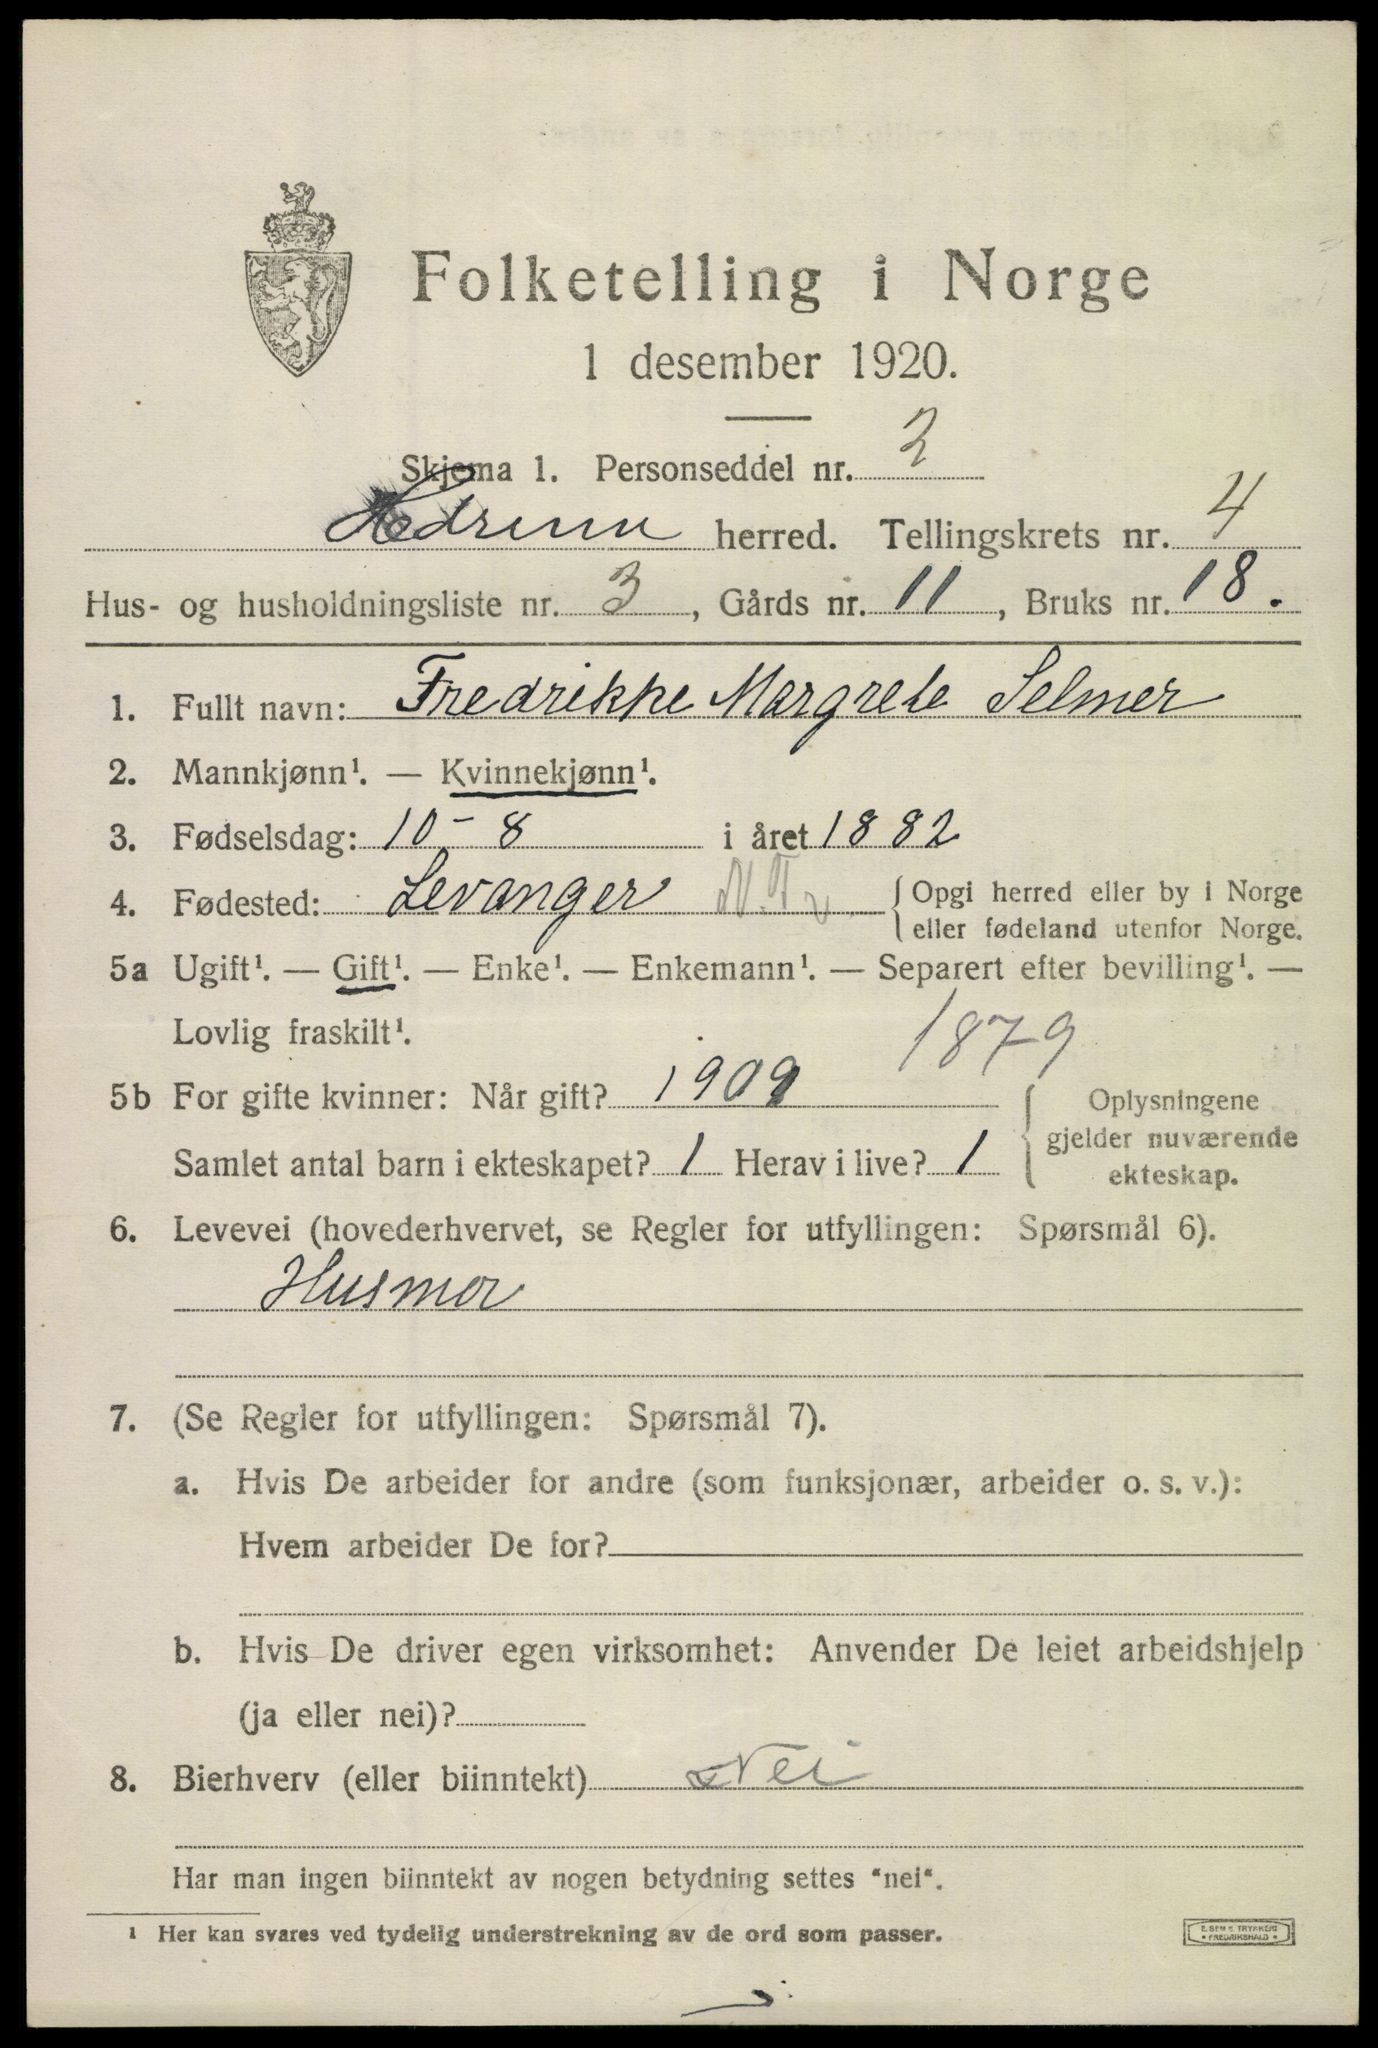 Folketelling i Norge
1 desember 1920.
Skjema 1. Personseddel nr. 2
Hedrum herred. Tellingskrets nr. 4
Hus- og husholdningsliste nr. 3, Gårds nr. 11, Bruks nr. 18.
1. Fullt navn: Fredrikke Margrete Selmer
2. Mannkjønn¹. — Kvinnekjønn¹.
3. Fødselsdag: 10-8 i året 1882
4. Fødested: Levanger N.Tr. { Opgi herred eller by i Norge
eller fødeland utenfor Norge.
5a Ugift¹. — Gift¹. — Enke¹. — Enkemann¹. — Separert efter bevilling¹. —
Lovlig fraskilt¹. 1879
5b For gifte kvinner: Når gift? 1909
Samlet antal barn i ekteskapet? 1 Herav i live? 1
{ Oplysningene
gjelder nuværende
ekteskap.
6. Levevei (hovederhvervet, se Regler for utfyllingen: Spørsmål 6).
Husmor
7. (Se Regler for utfyllingen: Spørsmål 7).
a. Hvis De arbeider for andre (som funksjonær, arbeider o. s. v.):
Hvem arbeider De for?
b. Hvis De driver egen virksomhet: Anvender De leiet arbeidshjelp
(ja eller nei)?
8. Bierhverv (eller biinntekt) Nei
Har man ingen biinntekt av nogen betydning settes "nei".
¹ Her kan svares ved tydelig understrekning av de ord som passer.
E. SEM'S TRYKKERI
• FREDRIKSHALD •